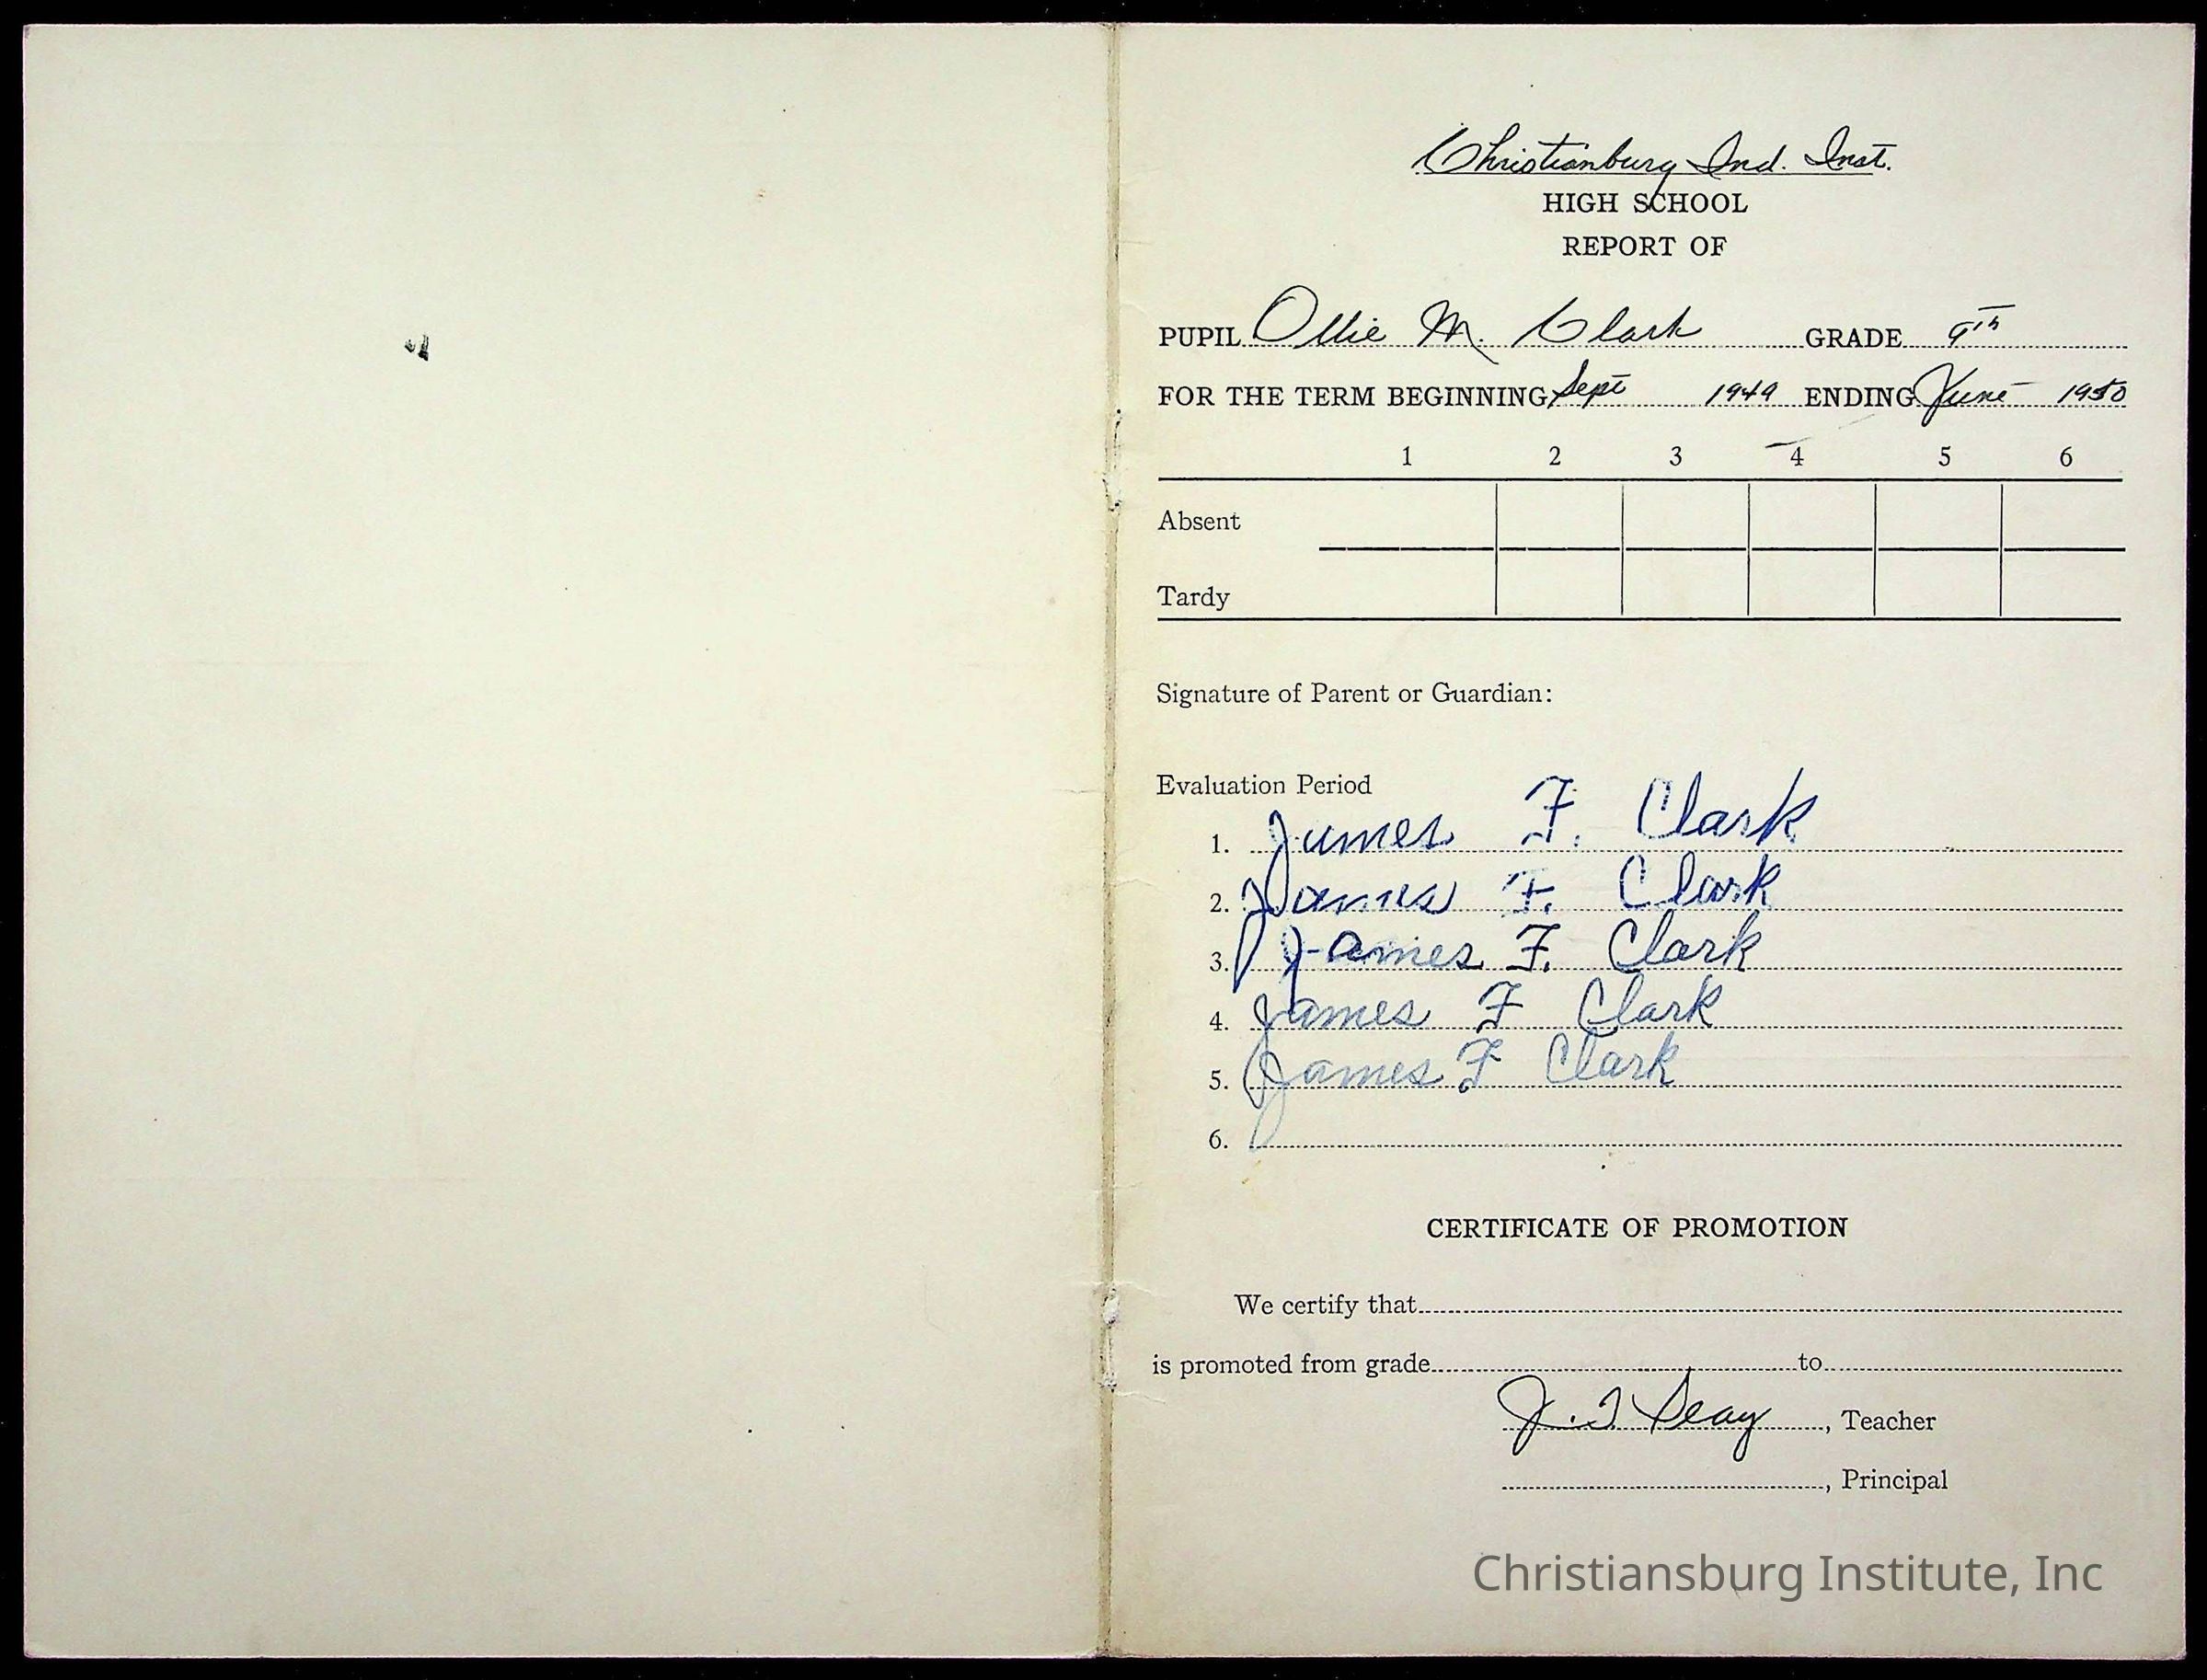 Christianburg Ind. Inst.
HIGH SCHOOL
REPORT OF
PUPIL Ollie M. Clark GRADE 9th
FOR THE TERM BEGINNING Sept 1949 ENDING June 1950
1 2 3 4 5 6
Absent
Tardy
Signature of Parent or Guardian:
Evaluation Period
1. James F. Clark
2. James F. Clark
3. James F. Clark
4. James F Clark
5. James F Clark
6.
CERTIFICATE OF PROMOTION
We certify that
is promoted from grade to
J. T. Seay, Teacher
, Principal
Christiansburg Institute, Inc